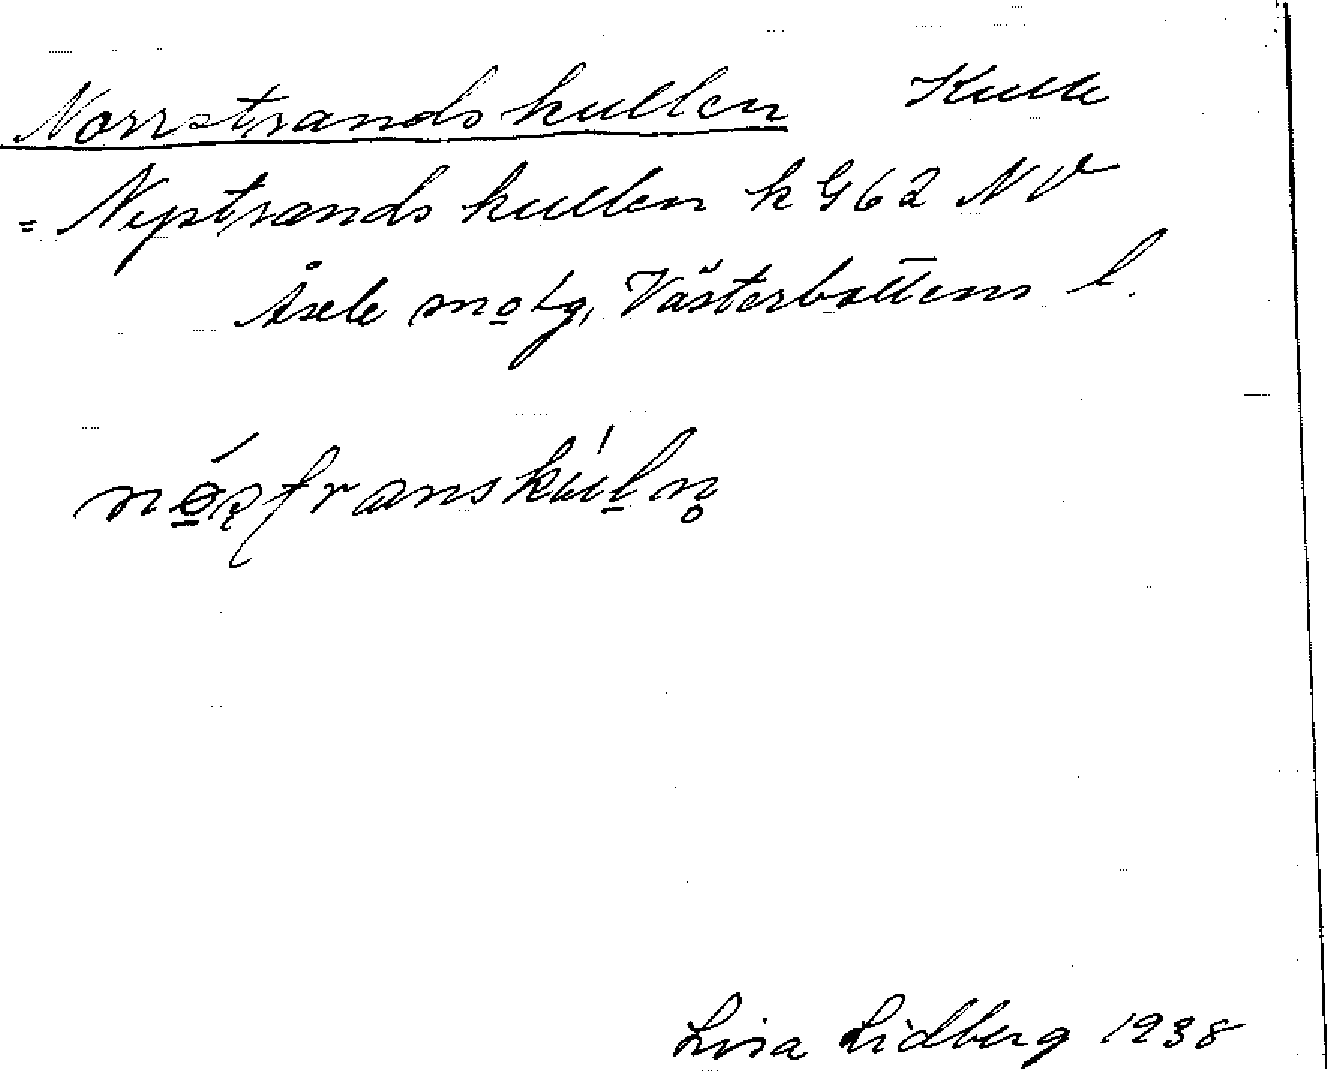 Norrstrandskullen Kulle
= Nystrandskullen k G62 NV
Åsele mo lg, Västerbottens l.
Lisa Lidberg 1938